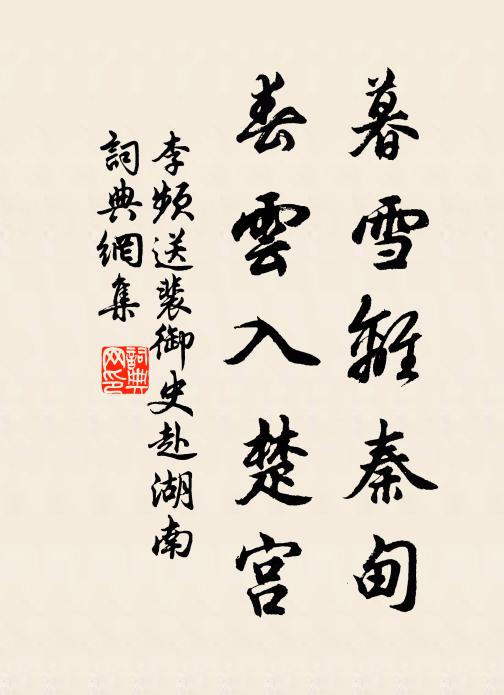 暮雪離秦甸
春雲入楚宮
李频送裴御史赴湖南
詞典網集
詞典网印